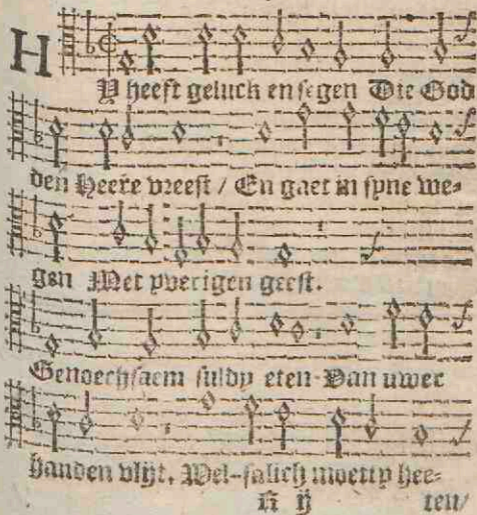 HY heeft geluck en segen Die God
den Heere vreest / En gaet in syne we-
gen Met yverigen geest.
Genoechsaem suldy eten Van uwer
handen vlijt, Wel-salich moetty hee-
K ij ten/